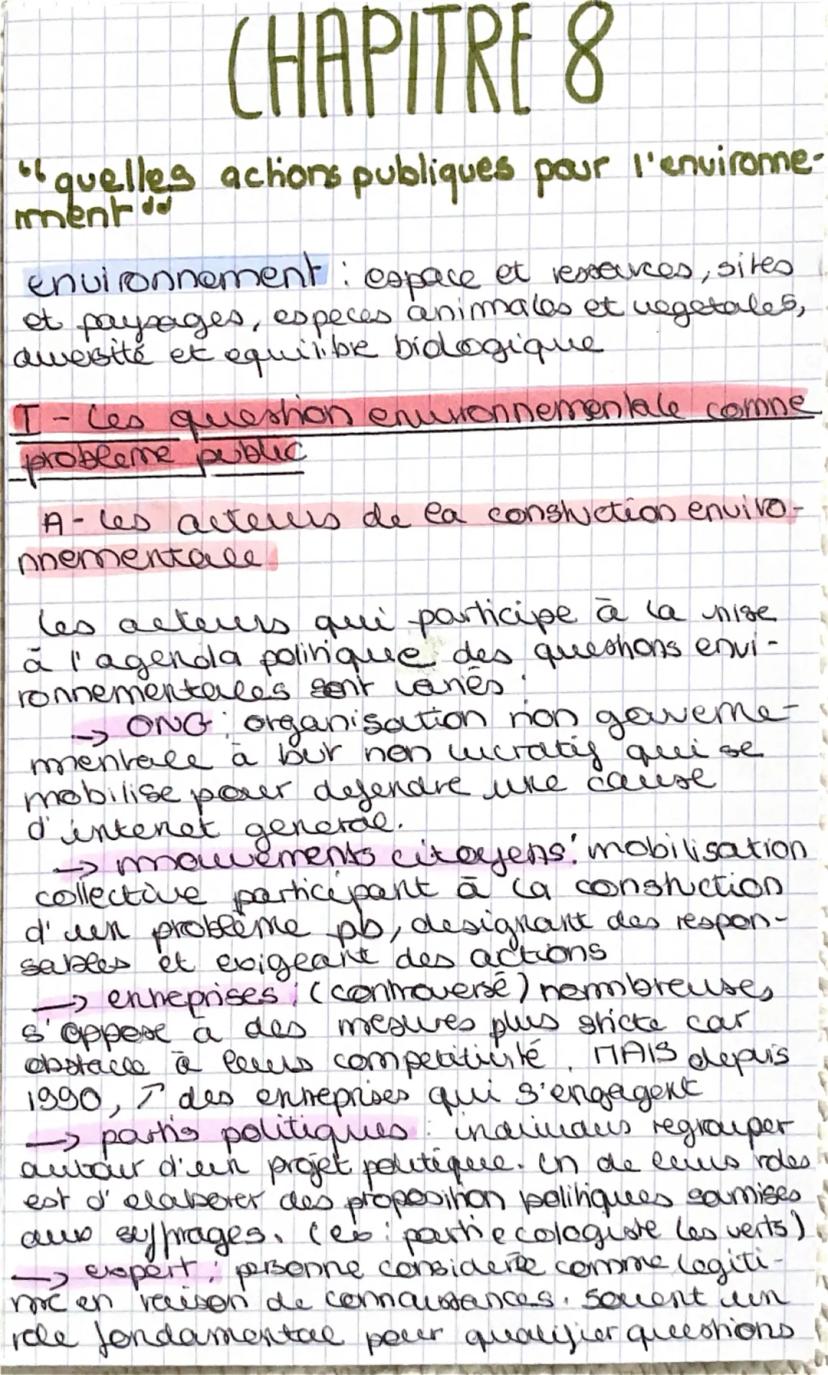 CHAPITRE 8
"quelles actions publiques pour l'environne-
ment"
environnement : espace et ressources, sites
et paysages, especes animales et vegetales,
diversité et equilibre biologique
I - Les question environnementale comme
probleme public
A - Les acteurs de la construction enviro-
nnementale
Les acteurs qui participe à la mise
à l'agenda politique des questions envi-
ronnementales sont variés :
→ ONG : organisation non gouverne-
mentale à but non lucratif qui se
mobilise pour defendre une cause
d'interet general.
→ mouvements citoyens : mobilisation
collective participant à la construction
d'un problème pb, designant des respon-
sables et exigeant des actions
→ entreprises : (controversé) nombreuses
s'oppose à des mesures plus stricte car
obstacle à leurs competitivité. MAIS depuis
1990, ↗ des entreprises qui s'engagent
→ partis politiques : individus regrouper
autour d'un projet politique. Un de leurs roles
est d'elaborer des proposition politiques soumises
aux suffrages. (ex : parti ecologiste les verts)
→ expert : personne considerée comme legiti-
me en raison de connaissances. Souvent un
role fondamental pour qualifier questions